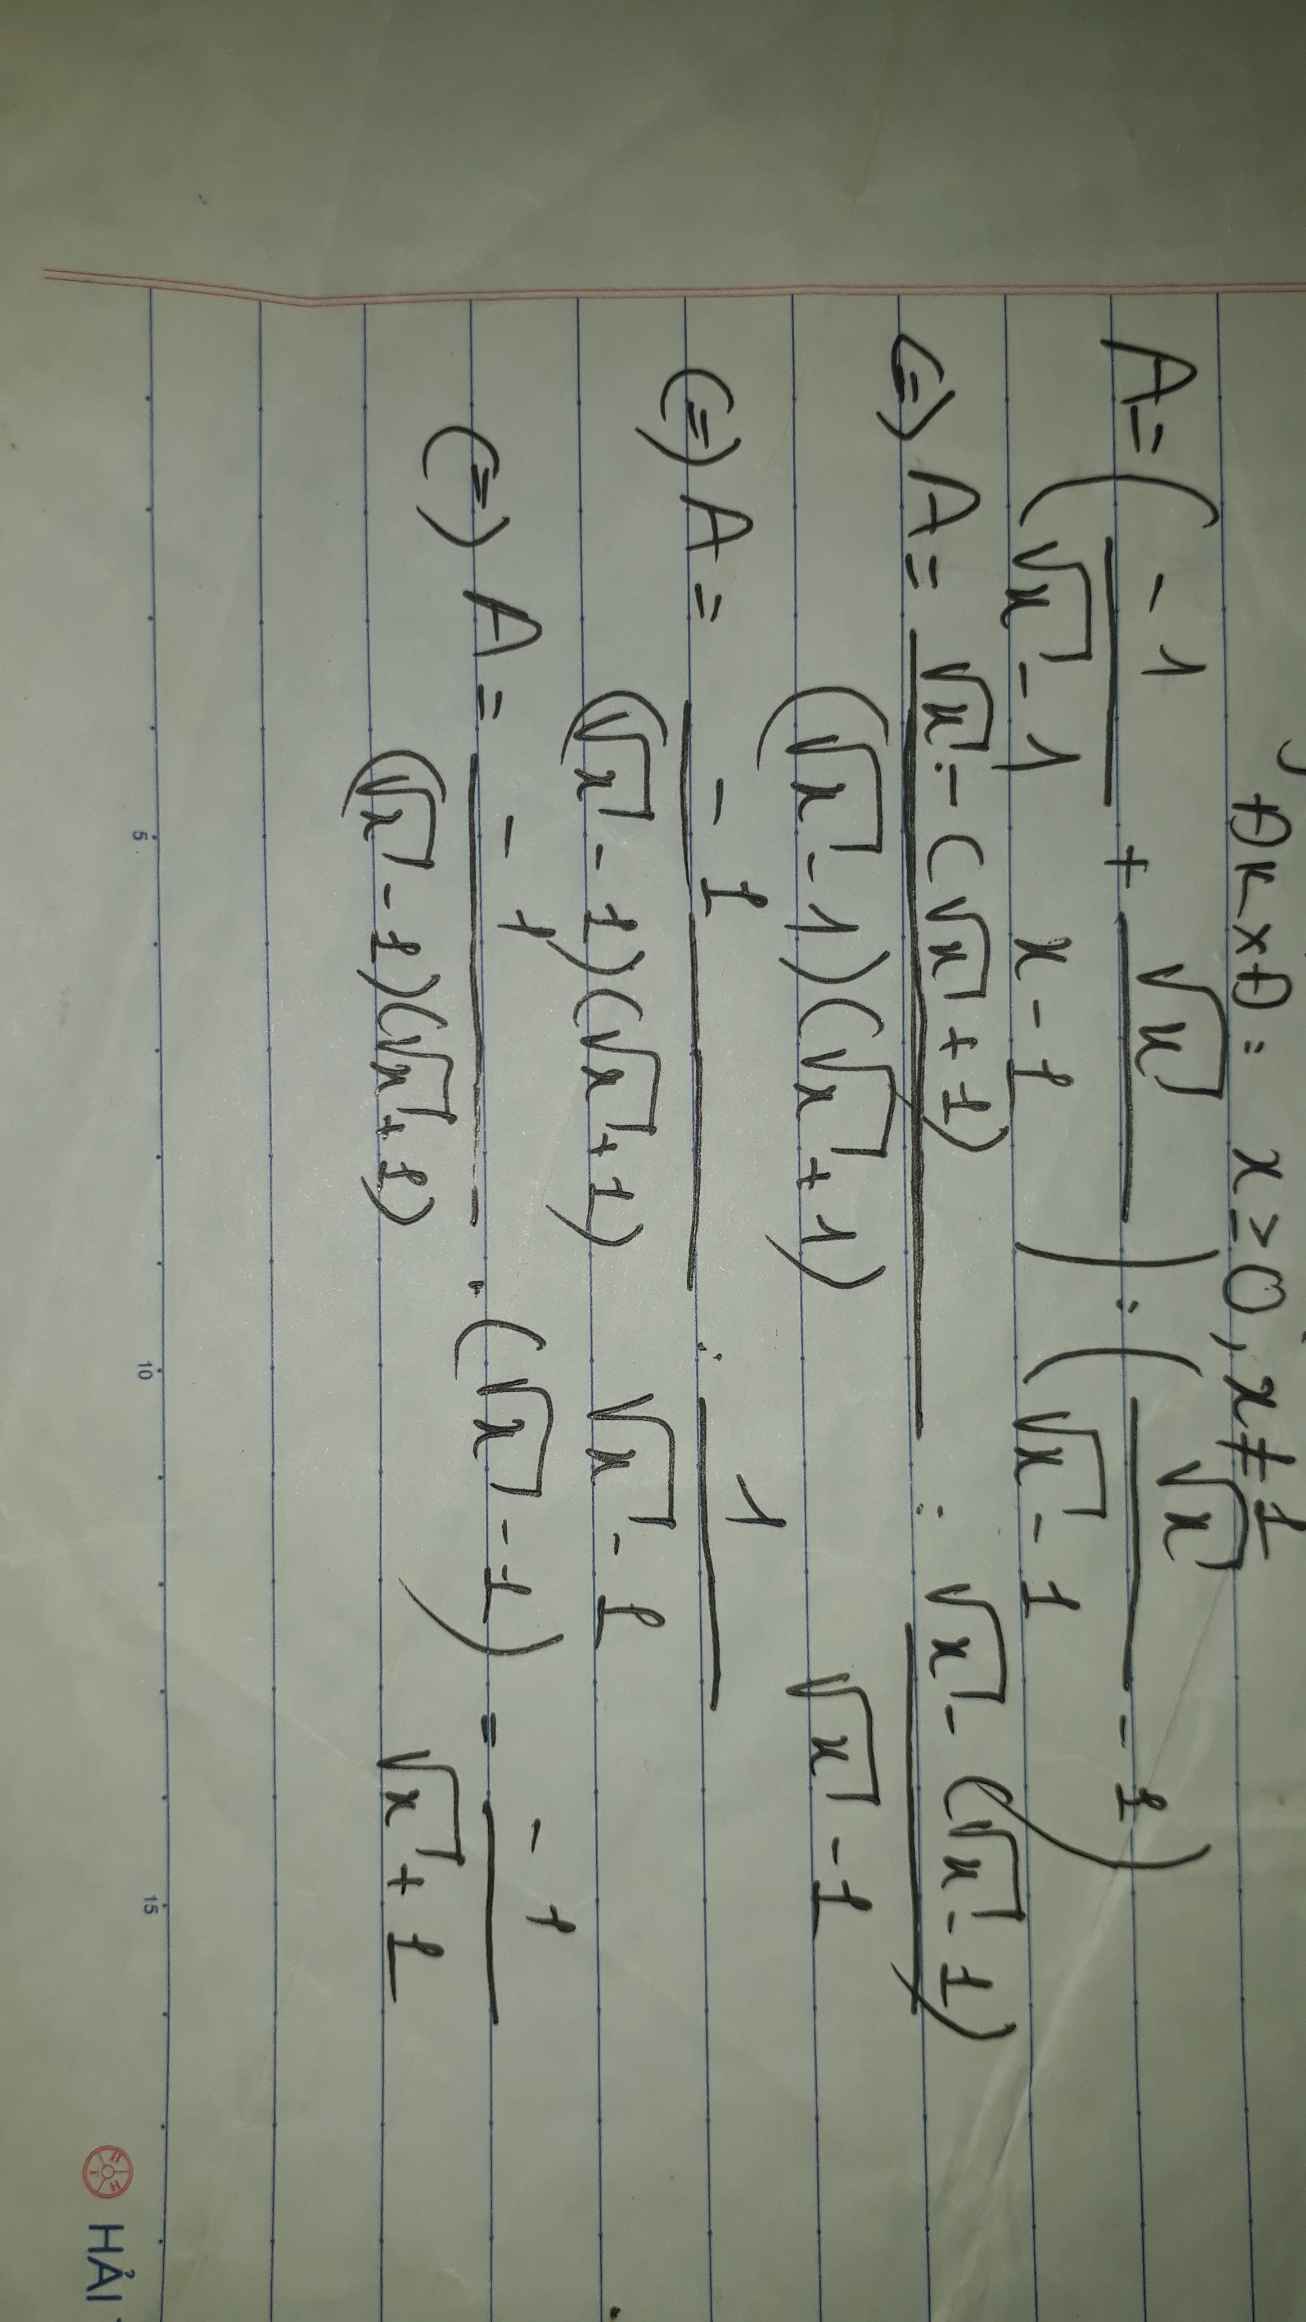 ĐKXĐ: x ≥ 0, x ≠ 1
A = ( -1/(√x - 1) + √x/(x - 1) ) : ( √x/(√x - 1) - 1 )
(=) A = (√x - (√x + 1))/((√x - 1)(√x + 1)) : (√x - (√x - 1))/(√x - 1)
(=) A = -1/((√x - 1)(√x + 1)) : 1/(√x - 1)
(=) A = -1/((√x - 1)(√x + 1)) . (√x - 1) = -1/(√x + 1)
5 10 15
HẢI